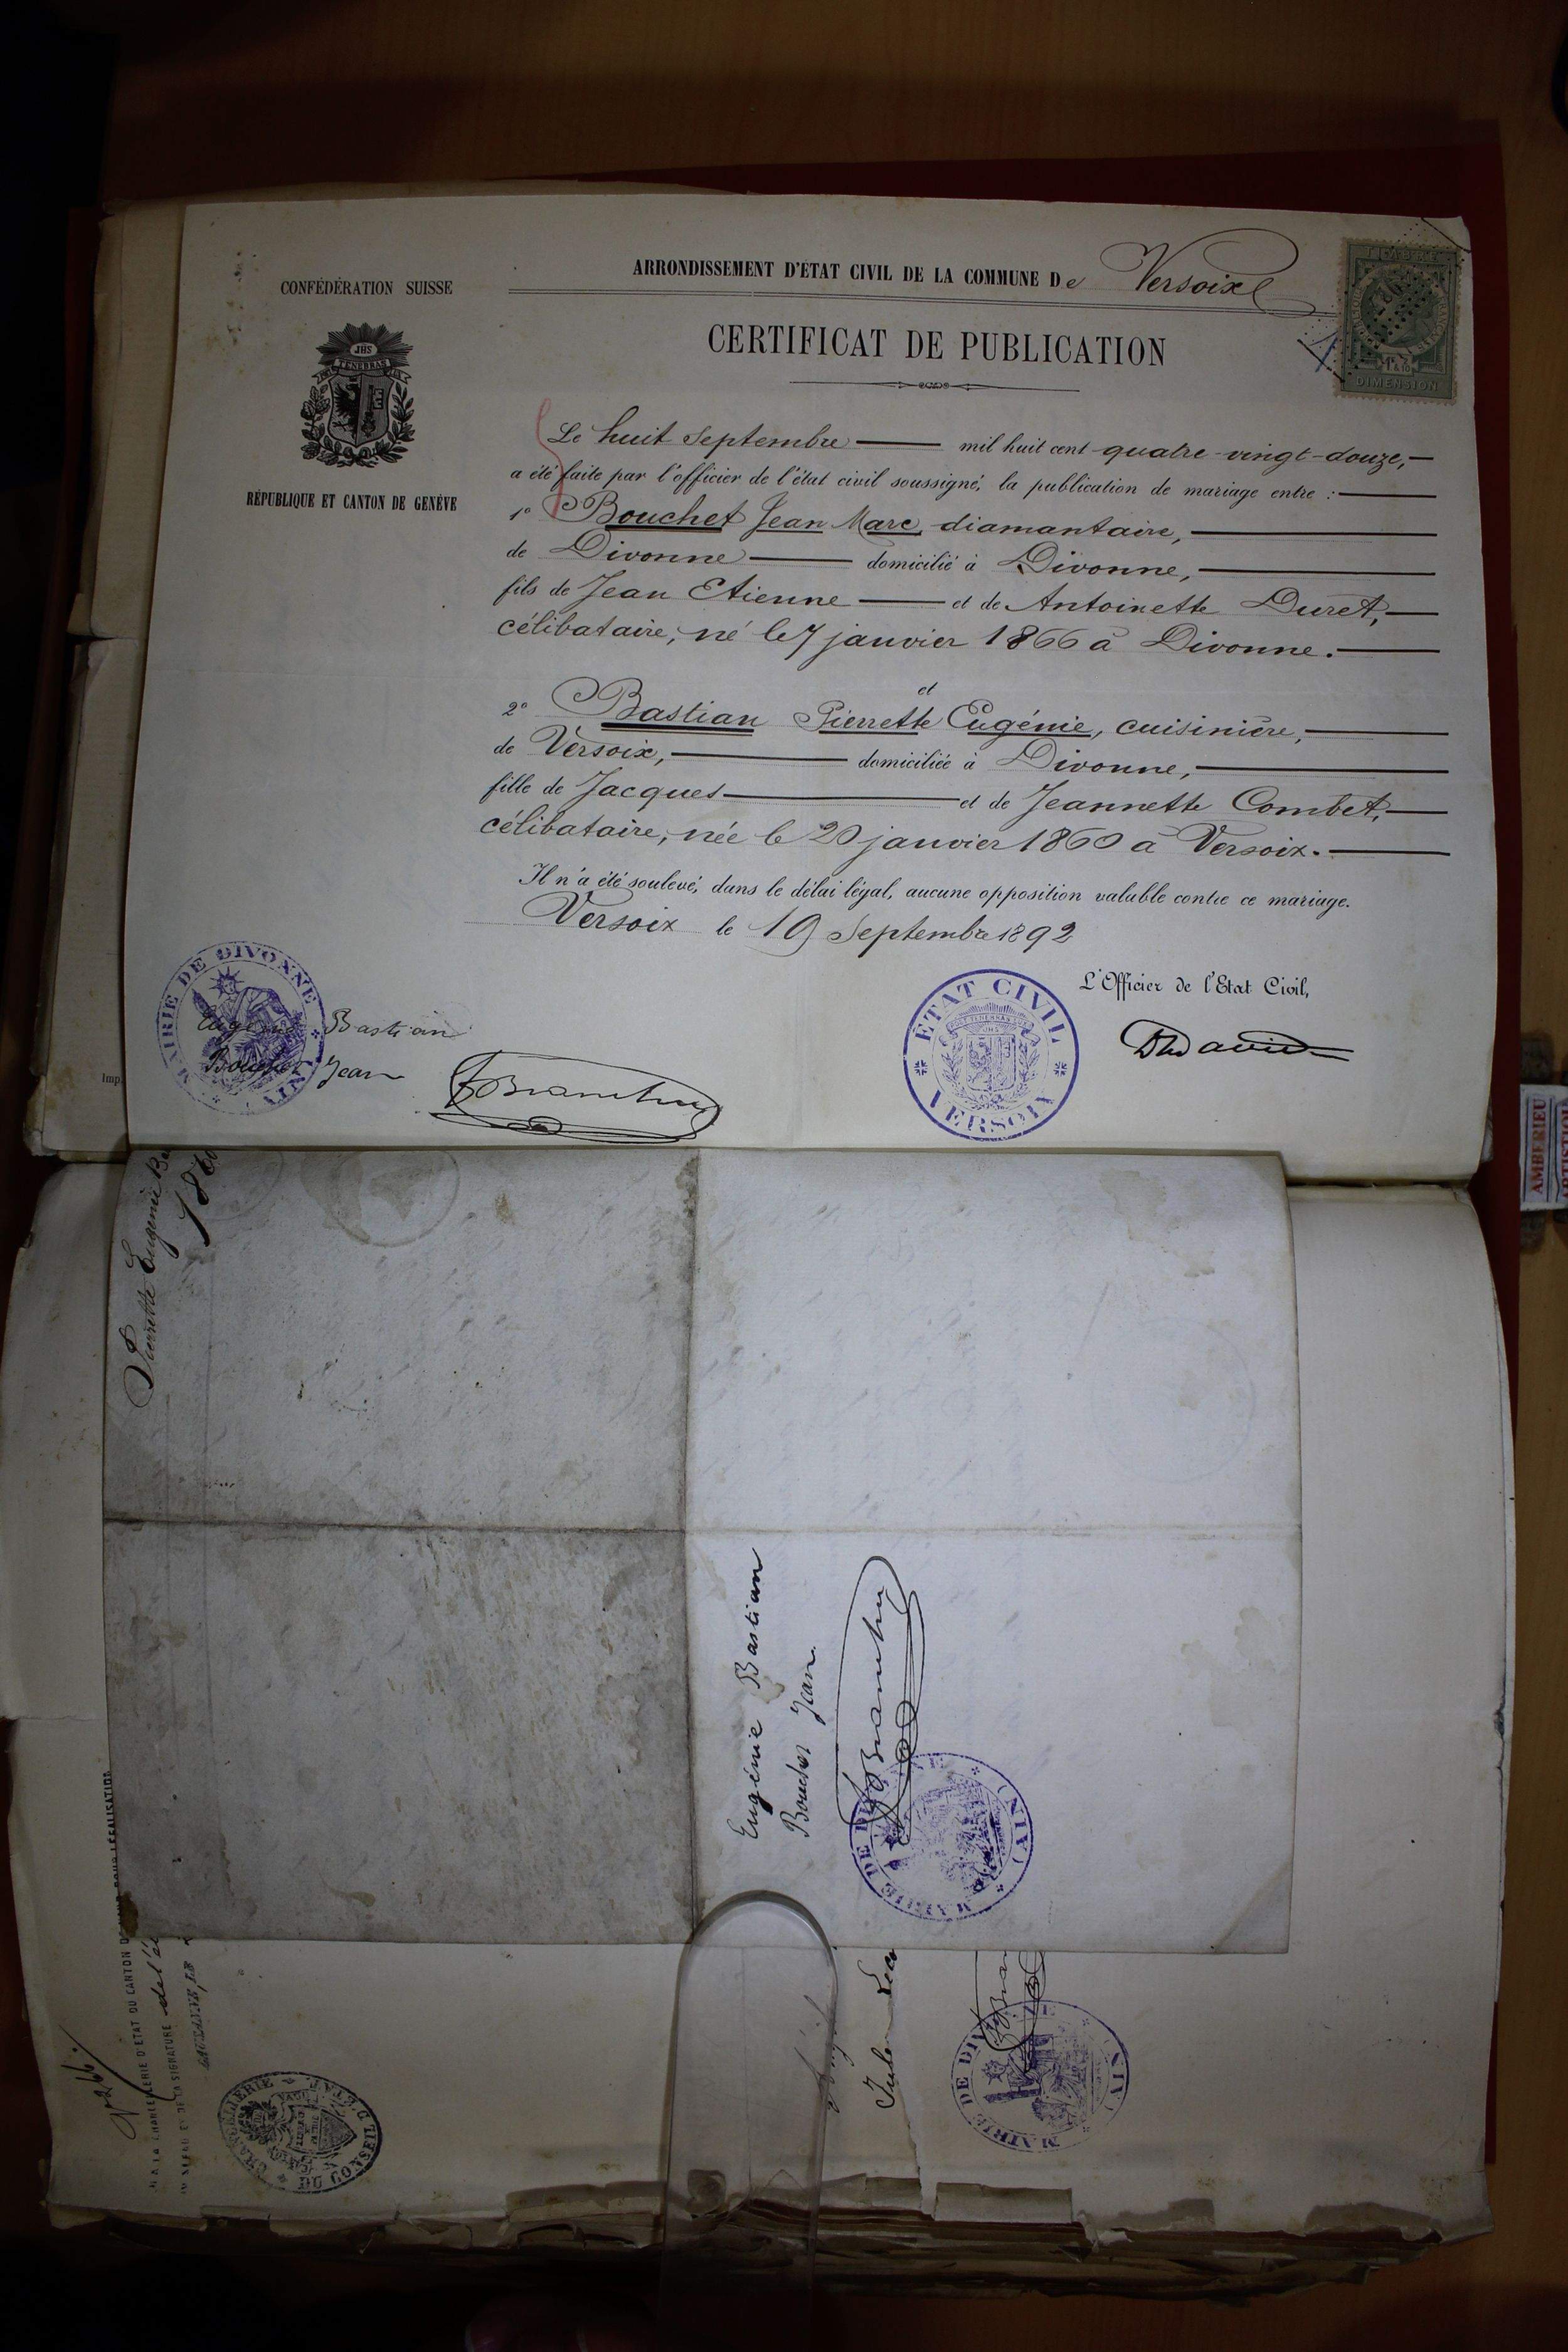 ARRONDISSEMENT D'ÉTAT CIVIL DE LA COMMUNE De Versoix
CONFÉDÉRATION SUISSE
JHS
POST TENEBRAS LUX
RÉPUBLIQUE ET CANTON DE GENÈVE
DIMENSION
CERTIFICAT DE PUBLICATION
Le huit Septembre mil huit cent quatre-vingt-douze,
a été faite par l'officier de l'état civil soussigné, la publication de mariage entre :
1º Bouchet Jean Marc, diamantaire,
de Divonne domicilié à Divonne,
fils de Jean Etienne et de Antoinette Duret,
célibataire, né le 7 janvier 1866 à Divonne.
et
2º Bastian Pierrette Eugénie, cuisinière,
de Versoix, domiciliée à Divonne,
fille de Jacques et de Jeannette Combet,
célibataire, née le 20 janvier 1860 à Versoix.
Il n'a été soulevé, dans le délai légal, aucune opposition valable contre ce mariage.
Versoix le 19 Septembre 1892
L'Officier de l'Etat Civil,
MAIRIE DE DIVONNE (AIN)
ETAT CIVIL VERSOIX
Eugénie Bastian
Bouchet Jean
Imp.
AMBERIEU
Pierrette Eugénie Ba
186
Eugénie Bastian
Bouchet Jean
MAIRIE DE DIVONNE (AIN)
MAIRIE DE DIV (AIN)
LA CHANCELLERIE D'ETAT DU CANTON DE VAUD POUR LÉGALISATION
DE LA SIGNATURE de l'
LAUSANNE, LE
CHANCELLERIE DU CONSEIL D'ETAT